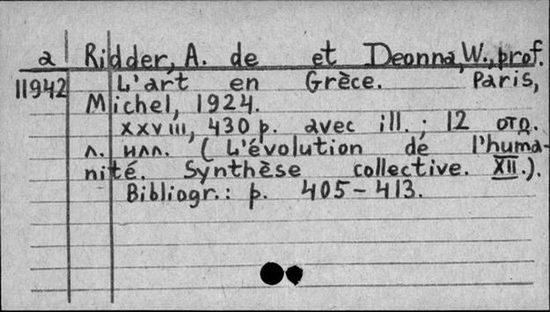 a Ridder, A. de et Deonna, W., prof.
11942 L'art en Grèce. Paris,
Michel, 1924.
XXVIII, 430 p. avec ill. ; 12 отд.
л. илл. (L'évolution de l'huma-
nité. Synthèse collective. XII.).
Bibliogr.: p. 405-413.